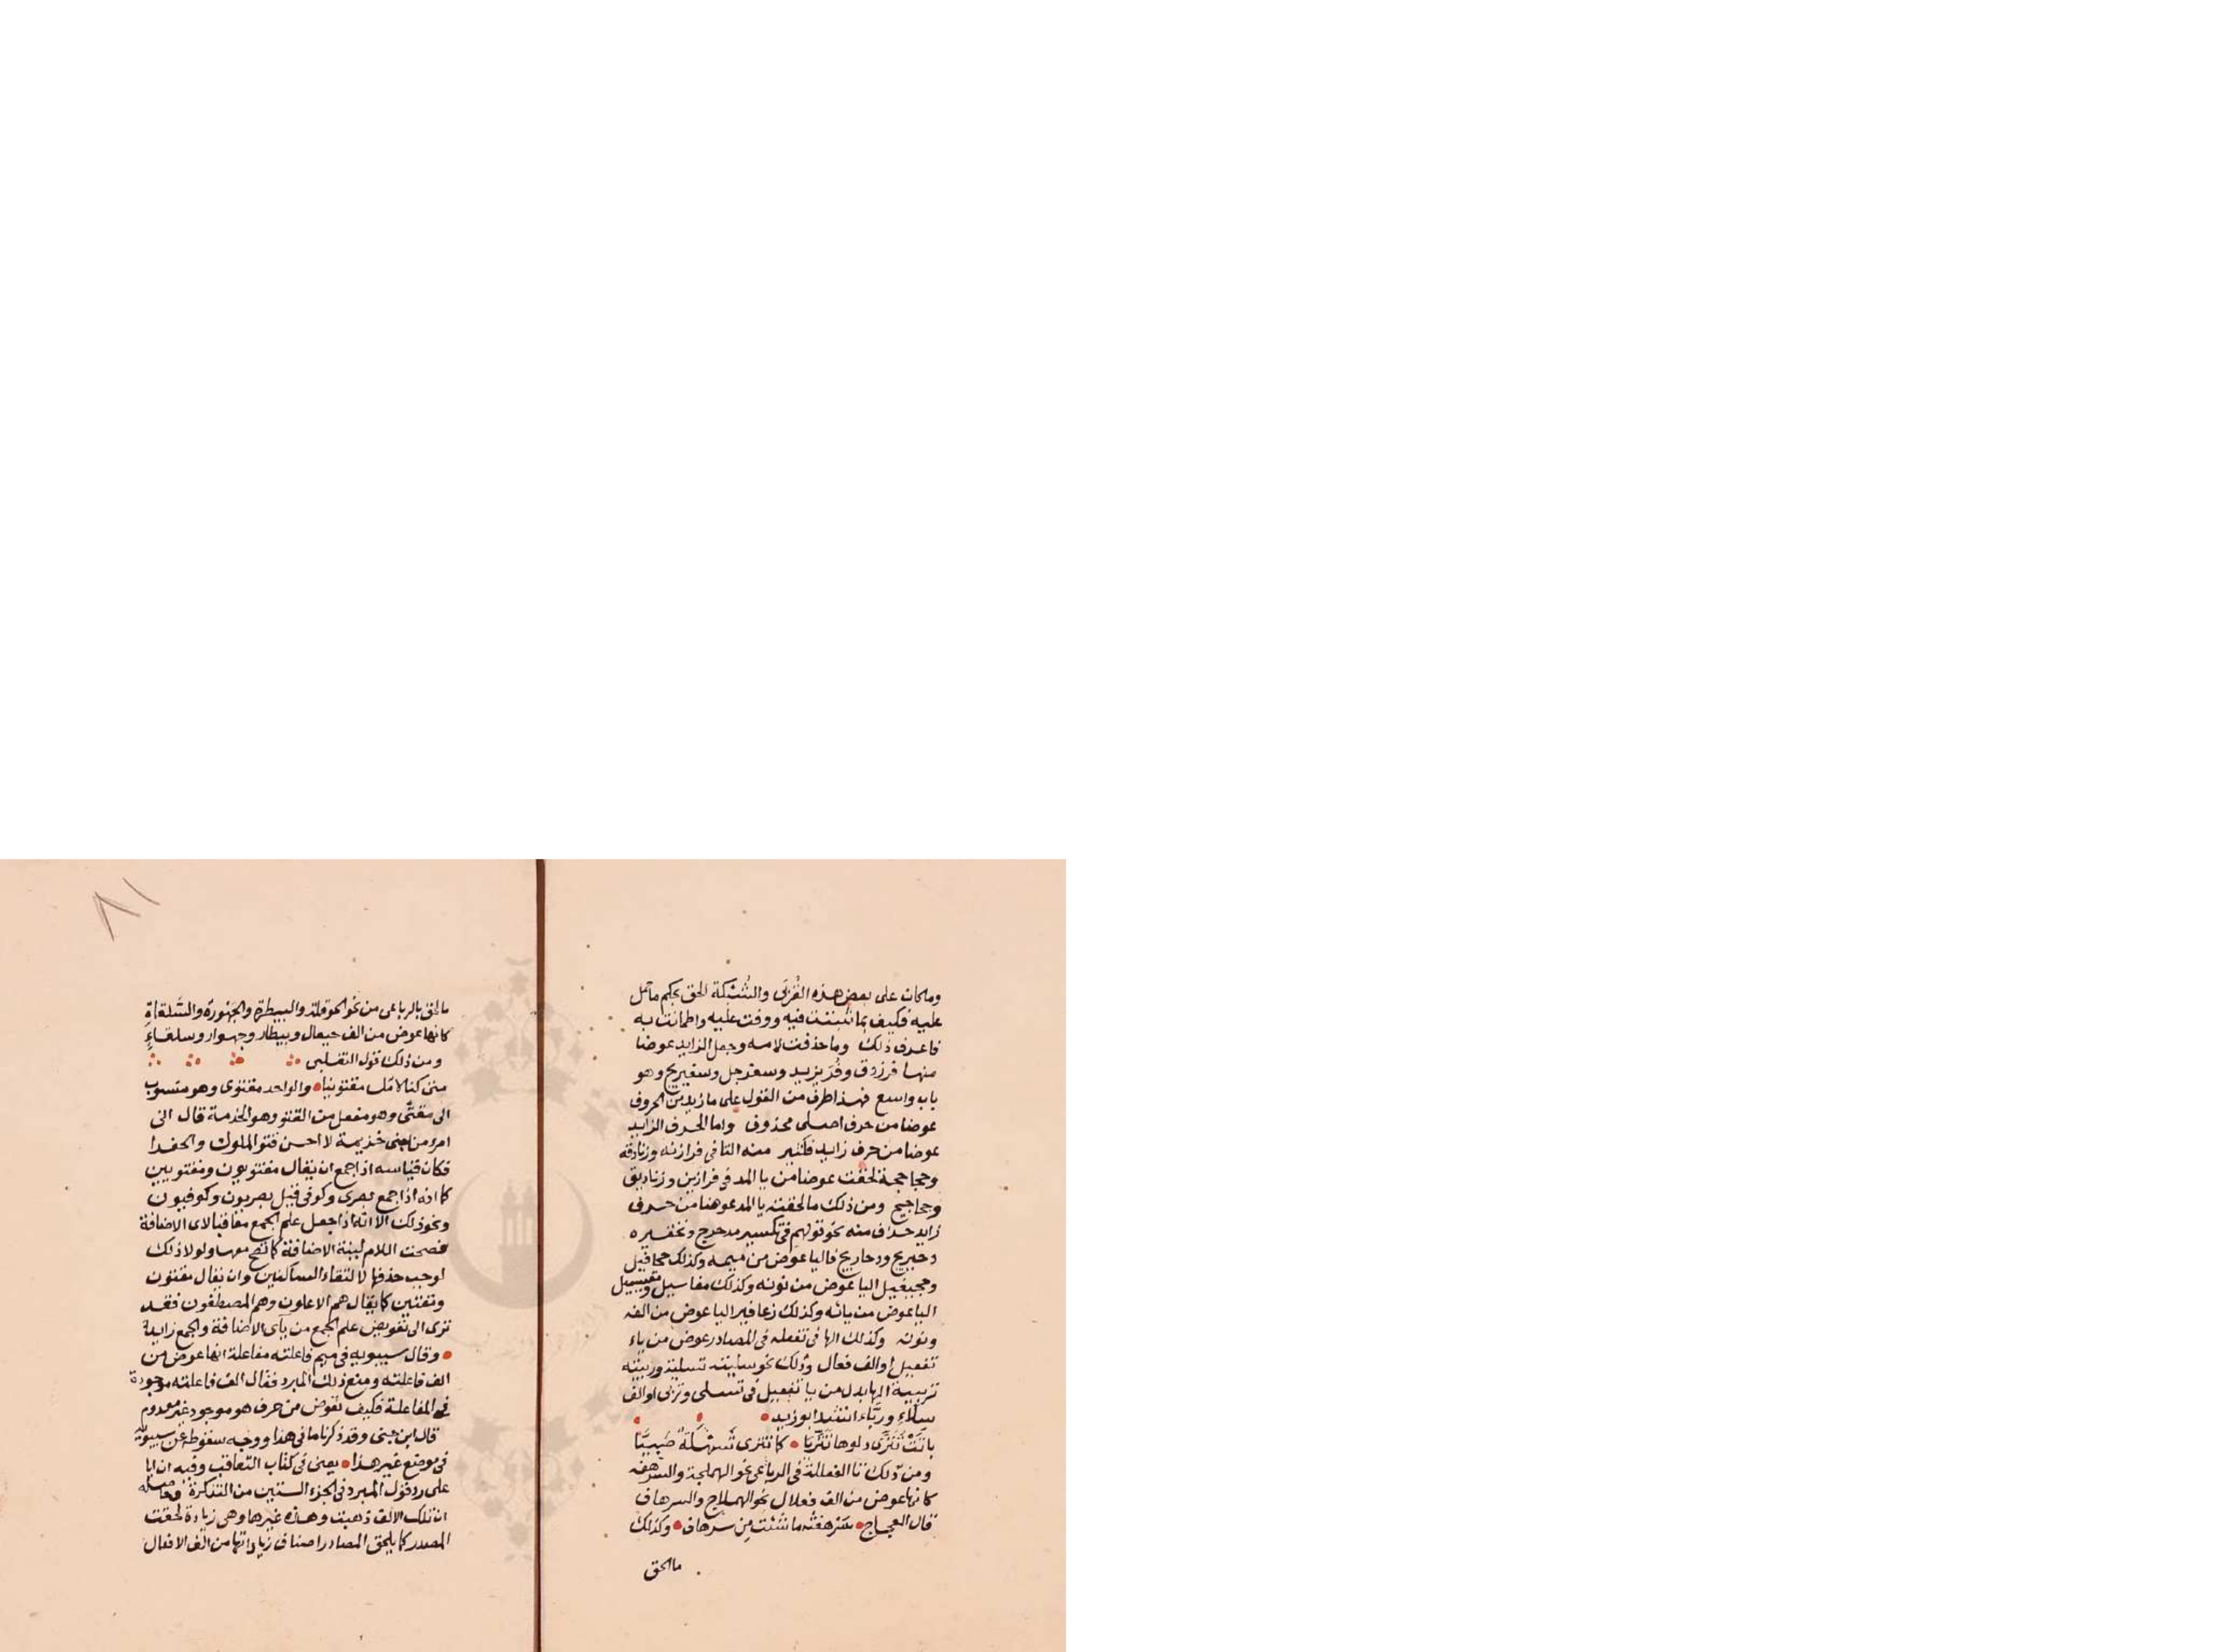 وما كان على بعض هذه القربى والشبكة الحق بحكم ما حمل
عليه فكيف بما ثبتت فيه ووقت عليه واطمانت به
فاعرف ذلك وما حذفت لامه وجعل الزايد عوضا
منها فرزدق وفريزيد وسفرجل وسفيريج وهو
باب واسع فهذا طرف من القول على ما زيد من الحروف
عوضا من حرف اصلى محذوف واما الحرف الزايد
عوضا من حرف زايد فكثير منه التا فى فرازنه وزنادقه
وحجاجحة لحقت عوضا من يا المد فى فرازين وزناديق
وحجاجيح ومن ذلك ما لحقته يا المد عوضا من حرف
زايد حذف منه نحو قولهم فى تكسير مدحرج وتحقيره
دحيريج ودحاريج فاليا عوض من ميمه وكذلك جحافيل
وجحيفيل اليا عوض من نونه وكذلك مغاسيل ومغيسيل
اليا عوض من يائه وكذلك زعافير اليا عوض من الفه
ونونه وكذلك الها فى تفعله فى المصادر عوض من ياء
تفعيل او الف فعال وذلك نحو سليته تسلية وربيته
تربية الها بدل من يا تفعيل فى تسلى وتربى او الف
سلاء ورباء انشد ابو زيد
باتت تنزى دلوها تنزيا كما تنزى شهلة صبيا
ومن ذلك تا الفعللة فى الرباعى نحو الهملجة والسرهفه
كانها عوض من الف فعلال نحو الهملاج والسرهاف
قال العجاج سرهفته ما شئت من سرهاف وكذلك
ما الحق
٨١
ما الحق بالرباعى من نحو الحوقلة والبيطرة والجهورة والسلقاة
كانها عوض من الف حيقال وبيطار وجهوار وسلقاء
ومن ذلك قول التغلبى
متى كنا لامك مقتوينا والواحد مقتوى وهو منسوب
الى مقتى وهو مفعل من القتو وهو الخدمة قال انى
امرء من بنى خزيمة لا احسن قتو الملوك والحفدا
فكان قياسه اذا جمع ان يقال مقتويون ومقتويين
كما انه اذا جمع بصرى وكوفى قيل بصريون وكوفيون
ونحو ذلك الا انه اذا جعل علم الجمع معاقبا لاى الاضافة
فصحت اللام لبنة الاضافة كما تصح معها ولولا ذلك
لوجب حذفها لالتقاء الساكنين وان يقال مقتون
ومقتين كما يقال هم الاعلون وهم المصطفون فقد
ترى الى تعويض علم الجمع من ياى الاضافة والجمع زايد
وقال سيبويه فى ميم فاعلته مفاعلة انها عوض من
الف فاعلته ومنع ذلك المبرد فقال الف فاعلته موجودة
فى المفاعلة فكيف تعوض من حرف هو موجود غير معدوم
قال ابن جنى وقد ذكرنا ما فى هذا ووجه سقوطه عن سيبويه
فى موضع غير هذا يعنى فى كتاب التعاقب وفيه ان ابا
على رد قول المبرد فى الجزء الستين من التذكرة وحاصله
ان تلك الالف ذهبت وهذه غيرها وهى زيادة لحقت
المصدر كما يلحق المصادر اصناف زياداتها من الف الافعال